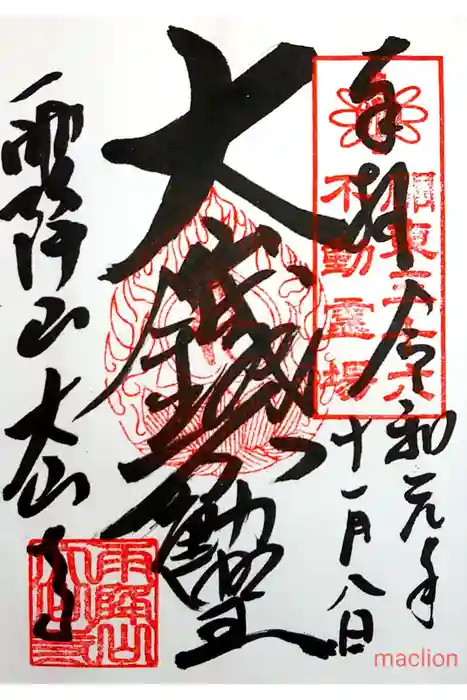 奉拝
令和元年
十一月八日
關東三十六
不動霊場
大鐵不動
雨降山大山寺
雨降山
大山寺
maclion